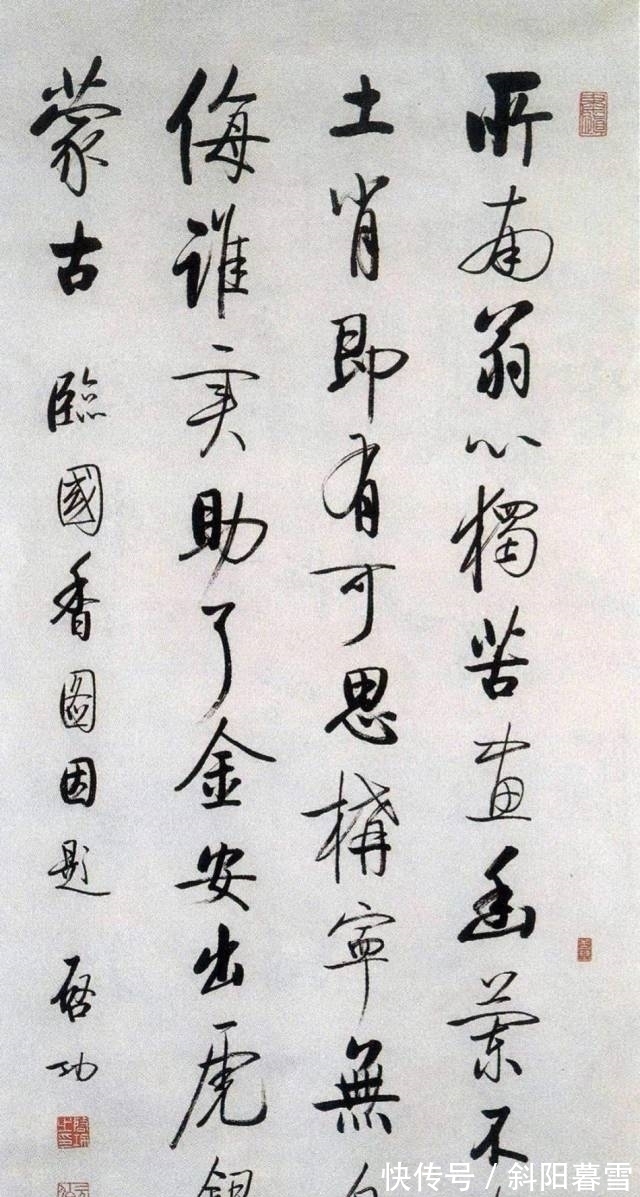 所南翁心獨苦画幽蘭不
土肖即有可思構寧無自
侮谁实助了金安出虎銀
蒙古 臨國香圖因題 啓功
快传号 / 斜阳暮雪